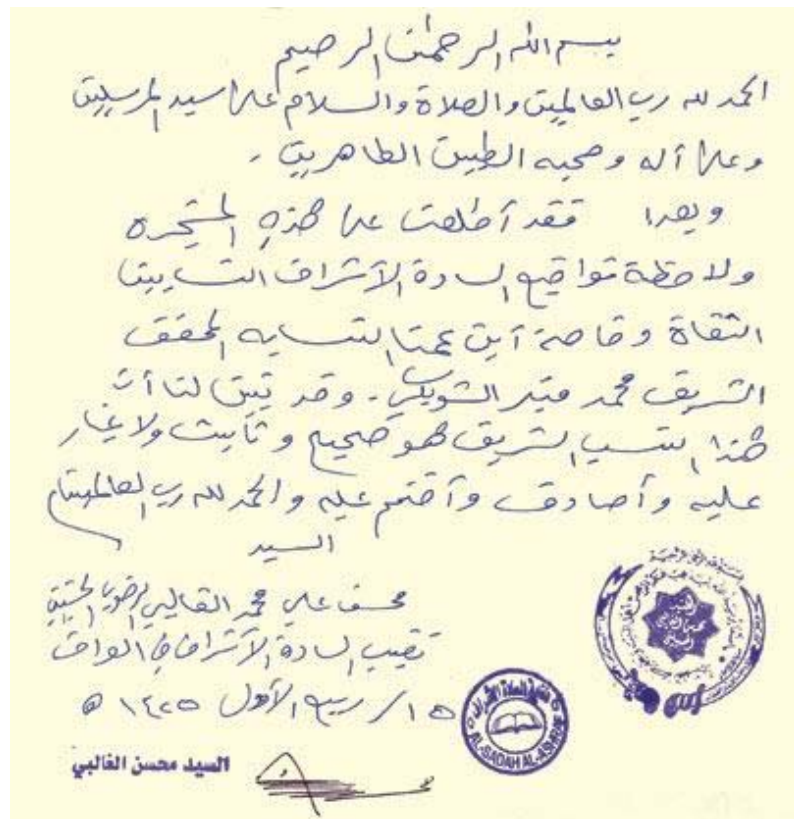 بسم الله الرحمن الرحيم
الحمد لله رب العالمين والصلاة والسلام على سيد المرسلين
وعلى آله وصحبه الطيبين الطاهرين .
وبعد فقد أطلعت على هذه المشجره
ولاحظة تواقيع السادة الأشراف النسابين
الثقاة وخاصة أبن عمنا النسابه المحقق
الشريف محمد منير الشويكي . وقد تبين لنا أن
هذا النسب الشريف هو صحيح وثابت ولا غبار
عليه وأصادق وأختم عليه والحمد لله رب العالمين
السيد
محسن علي محمد الغالبي الرضوي الحسيني
نقيب السادة الأشراف في العراق
١٥ / ربيع الأول ١٤٢٥ ه
AL-SADAH AL-ASHRAF
السيد محسن الغالبي